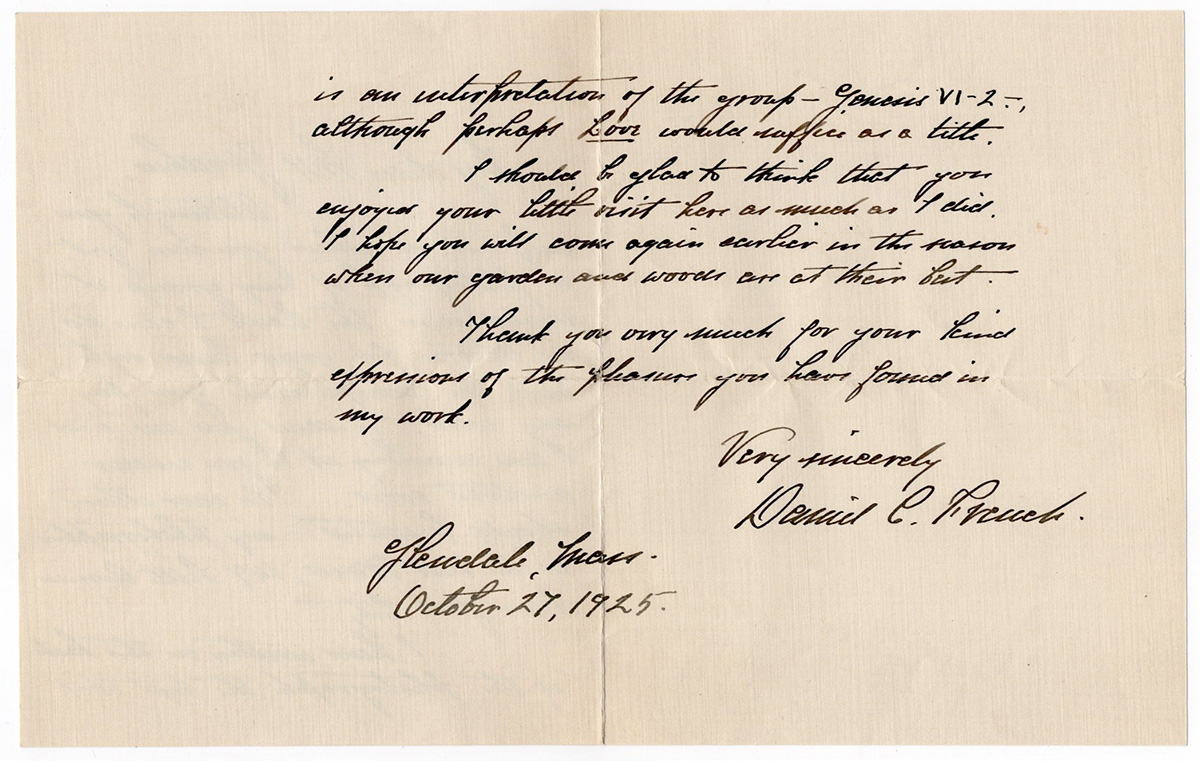 is an interpretation of the group – Genesis VI-2 –,
although perhaps Love would suffice as a title.
I should be glad to think that you
enjoyed your little visit here as much as I did.
I hope you will come again earlier in the season
when our garden and woods are at their best.
Thank you very much for your kind
expressions of the pleasure you have found in
my work.
Very sincerely
Daniel C. French.
Glendale, Mass.
October 27, 1925.